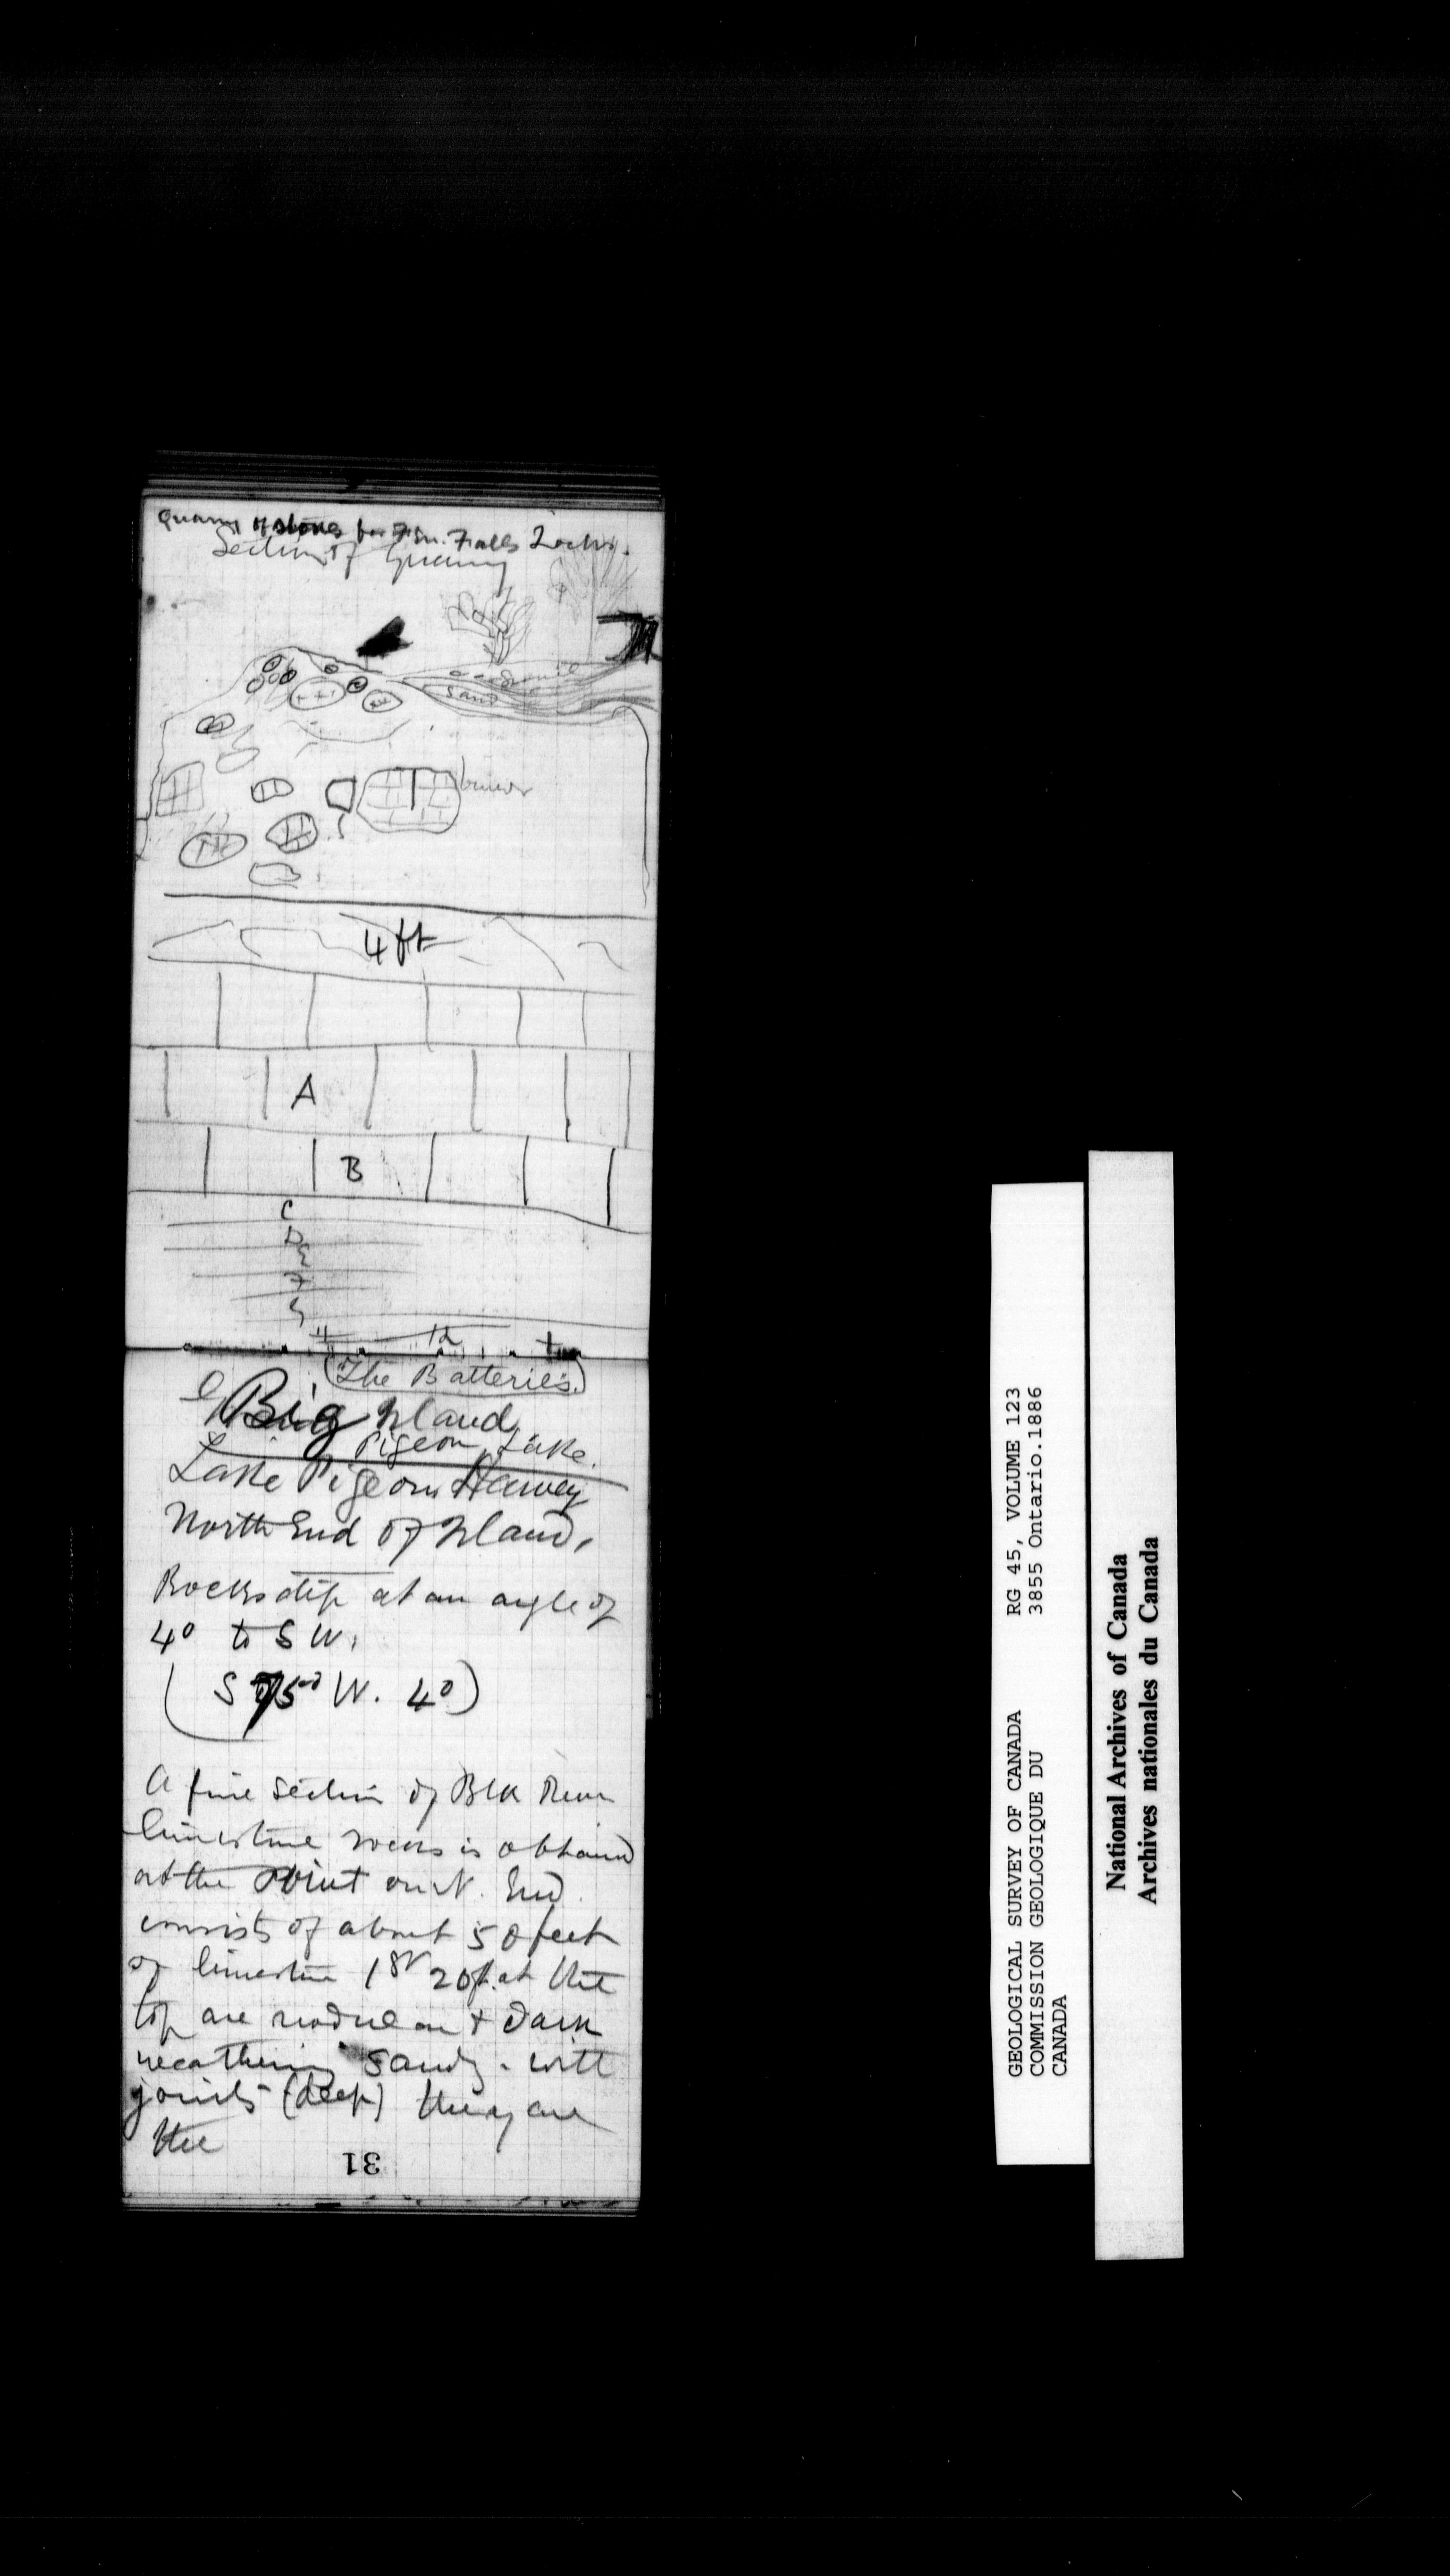 Quarry of stones for Fen. Falls Locks.
Section of Quarry
gravel
Sand
4 ft
A
B
C
D
E
F
G
(The Batteries.)
Big Island
Pigeon Lake.
Lake Pigeon Harvey
North End of Island.
Rocks dip at an angle of
4° to S W.
(S 75° W. 4°)
A fine section of Blk River
limestone rocks is obtained
at the point on N. End.
consists of about 50 feet
of limestone 1st 20 ft. at the
top are nodular + dark
weathering sandy. with
joints (deep) they are
the
31
GEOLOGICAL SURVEY OF CANADA RG 45, VOLUME 123
COMMISSION GEOLOGIQUE DU 3855 Ontario.1886
CANADA
National Archives of Canada
Archives nationales du Canada